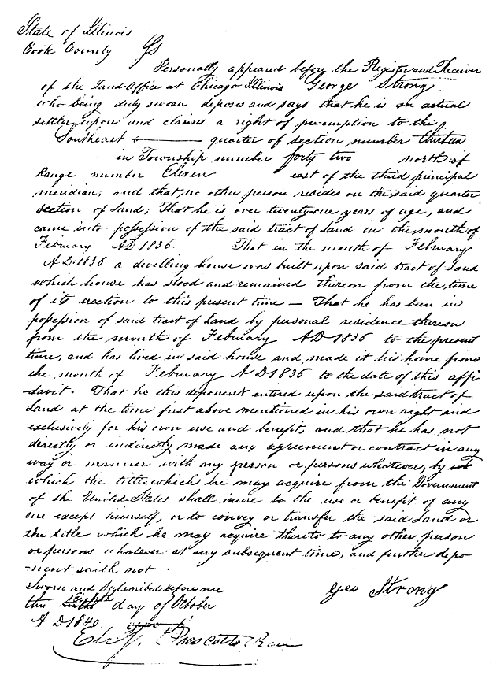 State of Illinois
Cook County } SS
Personally appeared before the Register and Receiver
of the Land Office at Chicago Illinois George Strong
who being duly sworn deposes and says that he is an actual
settler upon and claims a right of preemption to the
Southeast quarter of section number thirteen
in Township number forty two north of
Range number Eleven east of the third principal
meridian, and that, no other person resides on the said quarter
section of land; That he is over twenty one years of age, and
came into possession of the said tract of land in the month of
February AD 1836. That in the month of February
AD 1836 a dwelling house was built upon said tract of land
which house has stood and remained thereon from the time
of its erection to this present time — That he has been in
possession of said tract of land by personal residence thereon
from the month of February AD 1836 to the present
time, and has lived in said house and made it his home from
the month of February AD 1836 to the date of this affi-
davit. That he this deponent entered upon the said tract of
Land at the time first above mentioned in his own right and
exclusively for his own use and benefit, and that he has not
directly or indirectly made any agreement or contract in any
way or manner with any person or persons whatsoever, by
which the title which he may acquire from the Government
of the United States shall inure to the use or benefit of any
one except himself, or to convey or transfer the said Land or
the title which he may acquire thereto to any other person
or persons whatever at any subsequent time, and further depo-
-nent saith not.
Sworn and subscribed before me Geo Strong
this day of October
A D 1840
Prescott Rec